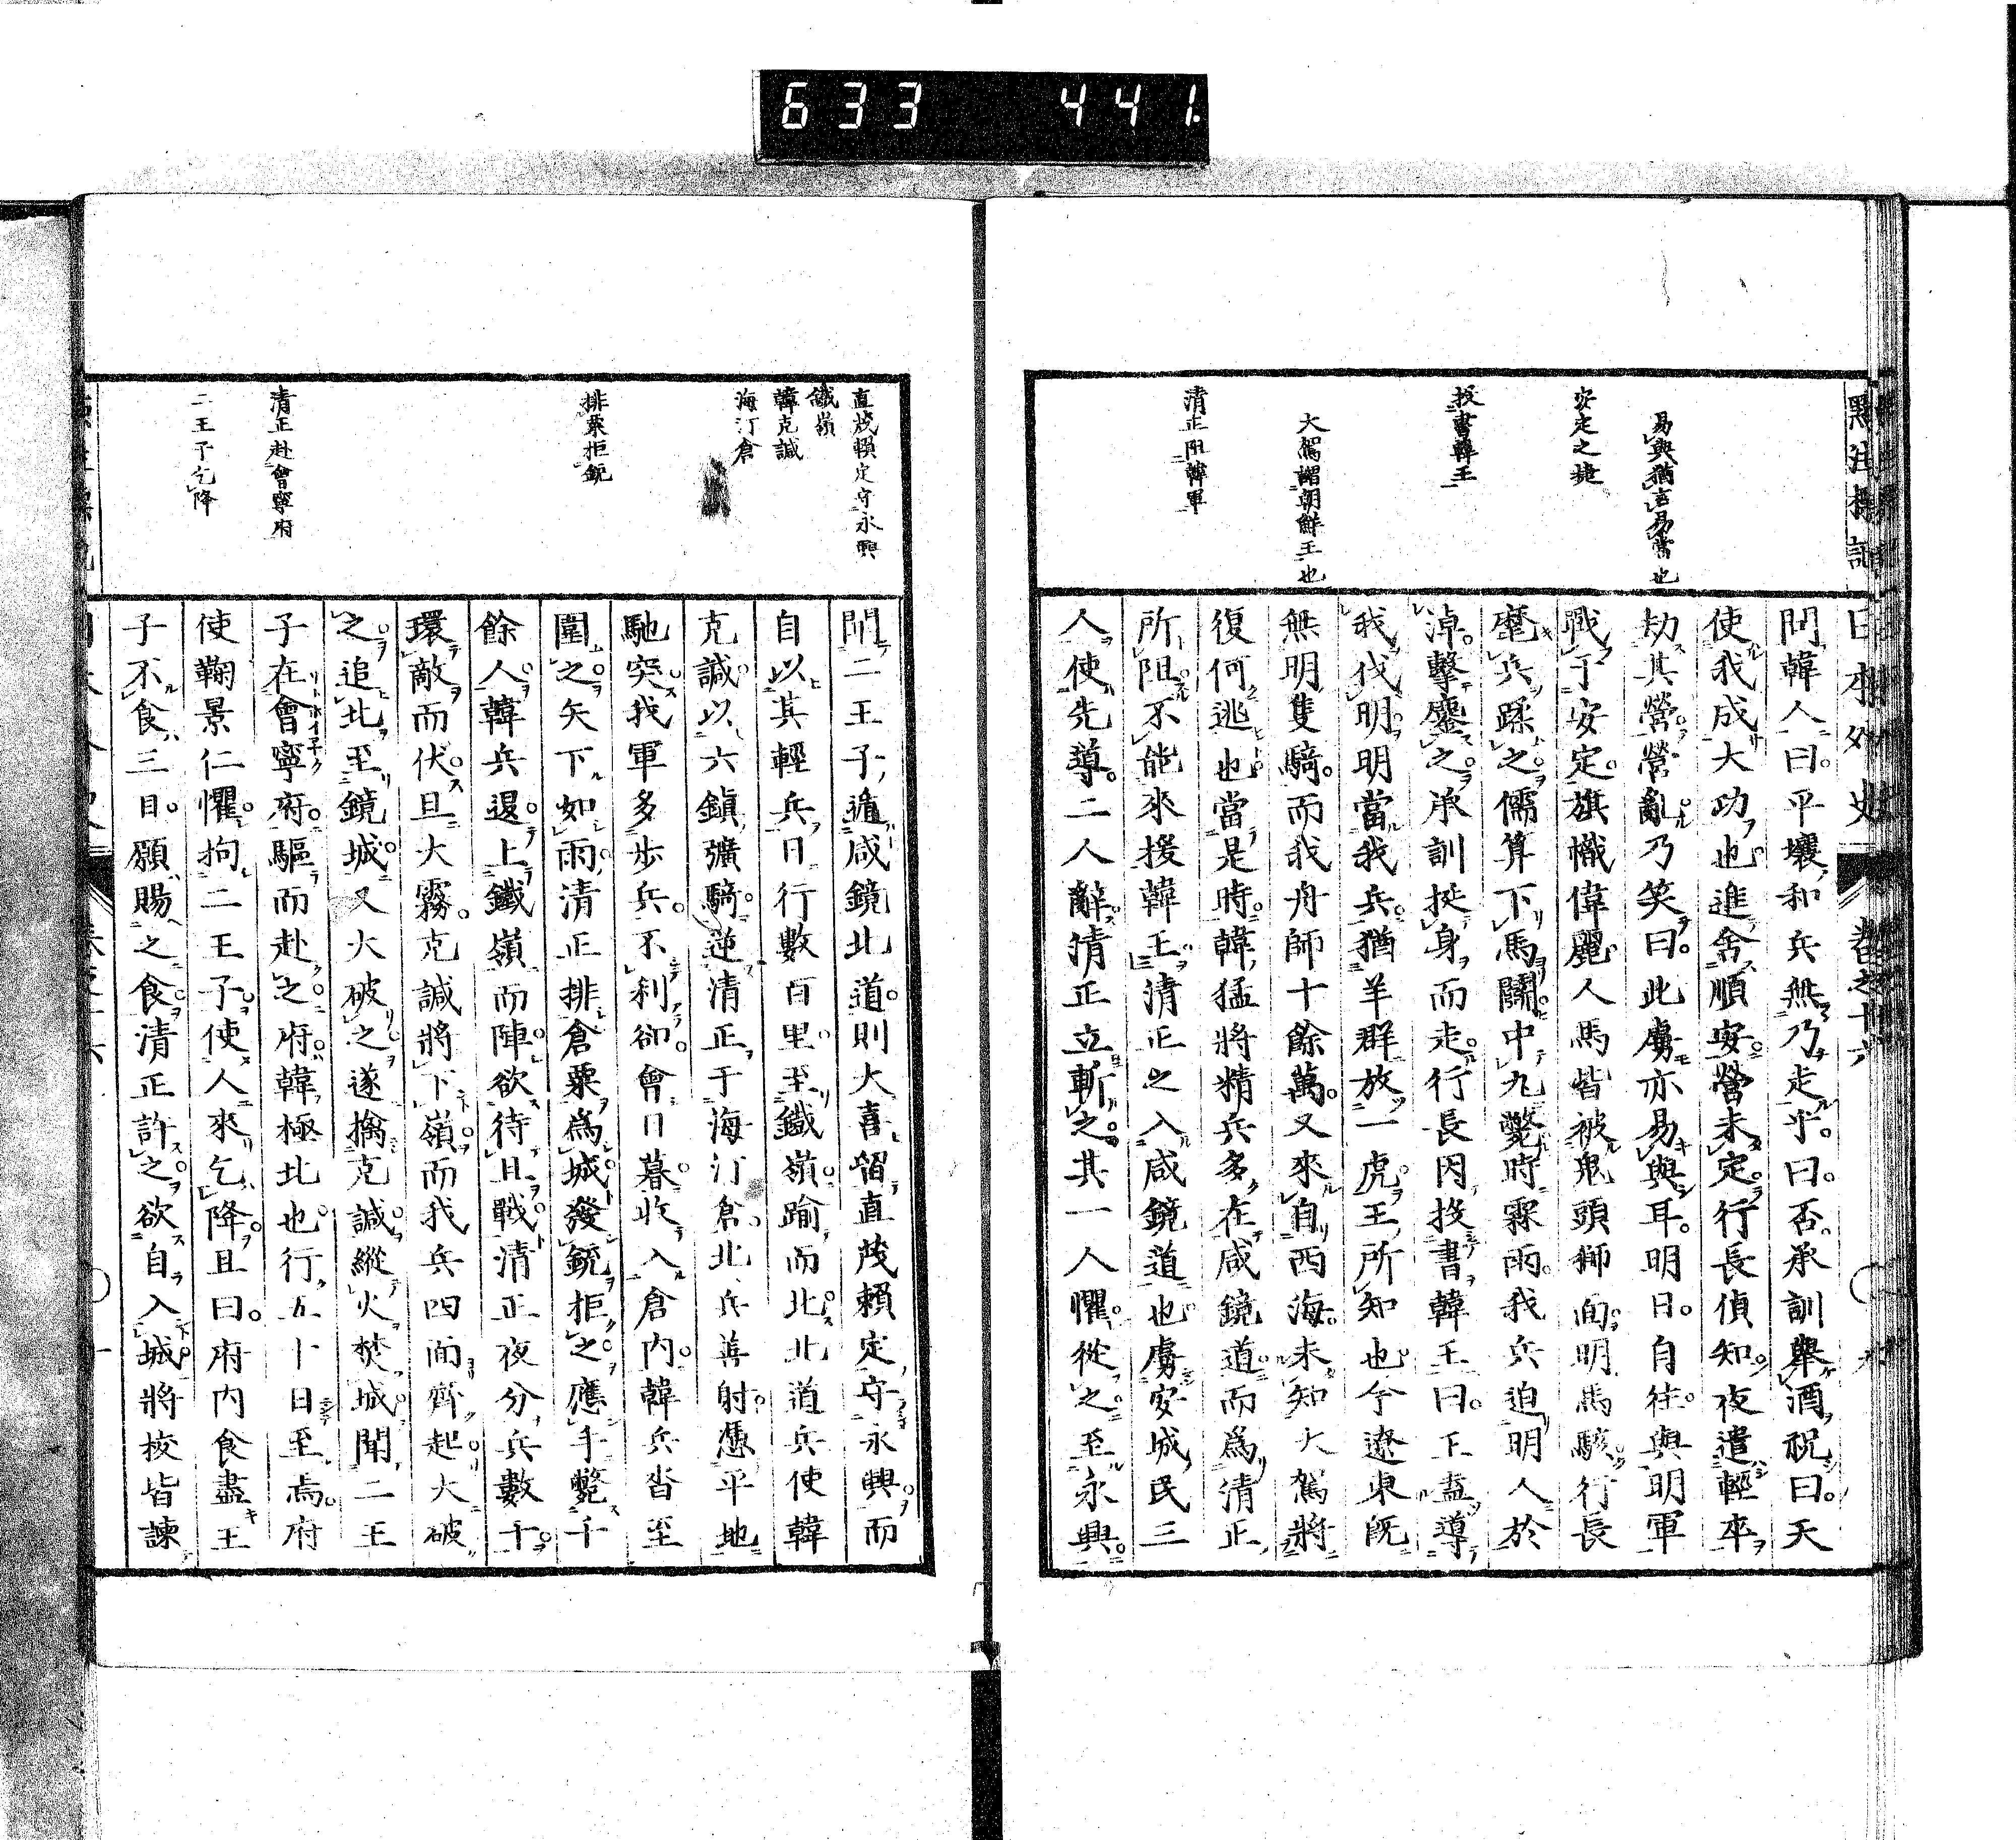 633 441
日本外史 卷之十六
易與猶言易當也
安定之捷
投書韓王
大駕謂朝鮮王也
清正阻韓軍
問韓人曰平壤和兵無乃走乎曰否承訓舉酒祝曰天
使我成大功也進舍順安營未定行長偵知夜遣輕卒
劫其營營亂乃笑曰此虜亦易與耳明日自往與明軍
戰于安定旗幟偉麗人馬皆被鬼頭獅面明馬駭行長
麾兵蹂之儒算下馬鬪中丸斃時霖雨我兵迫明人於
淖擊鏖之承訓挺身而走行長因投書韓王曰王盍導
我伐明明當我兵猶羊群放一虎王所知也今遼東既
無明隻騎而我舟師十餘萬又來自西海未知大駕將
復何逃也當是時韓猛將精兵多在咸鏡道而爲清正
所阻不能來援韓王清正之入咸鏡道也虜安城民三
人使先導二人辭清正立斬之其一人懼從之至永興
直茂賴定守永興
鐵嶺
韓克諴
海汀倉
排粟拒銃
清正赴會寧府
二王子乞降
聞二王子遁咸鏡北道則大喜留直茂賴定守永興而
自以其輕兵日行數百里至鐵嶺踰而北北道兵使韓
克諴以六鎭彍騎逆清正于海汀倉北兵善射憑平地
馳突我軍多步兵不利卻會日暮收入倉內韓兵沓至
圍之矢下如雨清正排倉粟爲城發銃拒之應手斃千
餘人韓兵退上鐵嶺而陣欲待旦戰清正夜分兵數千
環敵而伏旦大霧克諴將下嶺而我兵四面齊起大破
之追北至鏡城又大破之遂擒克諴縱火焚城聞二王
子在會寧府驅而赴之府韓極北也行五十日至焉府
使鞠景仁懼拘二王子使人來乞降且曰府內食盡王
子不食三日願賜之食清正許之欲自入城將校皆諫